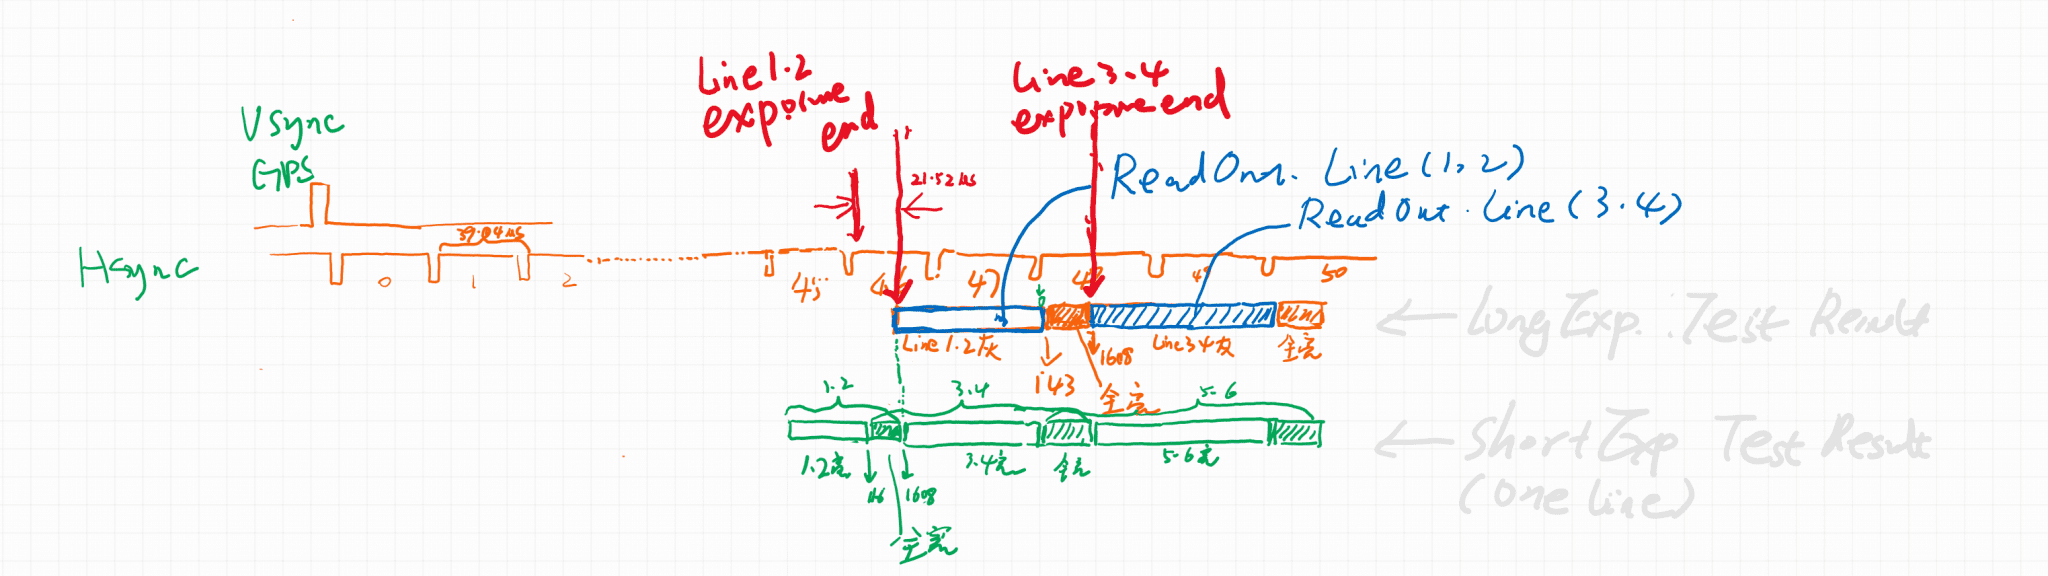 Line 1.2
exposure
end
Line 3.4
exposure end
VSync
GPS
21.52us
ReadOut. Line (1, 2)
ReadOut. Line (3.4)
39.04us
Hsync
0
1
2
45
46
47
48
49
50
Line 1.2灰
143
1608
Line 3.4灰
全亮
全亮
← Long Exp. Test Result
1.2
3.4
5.6
← Short Exp Test Result
(one line)
1.2亮
3.4亮
全亮
5.6亮
1608
全亮